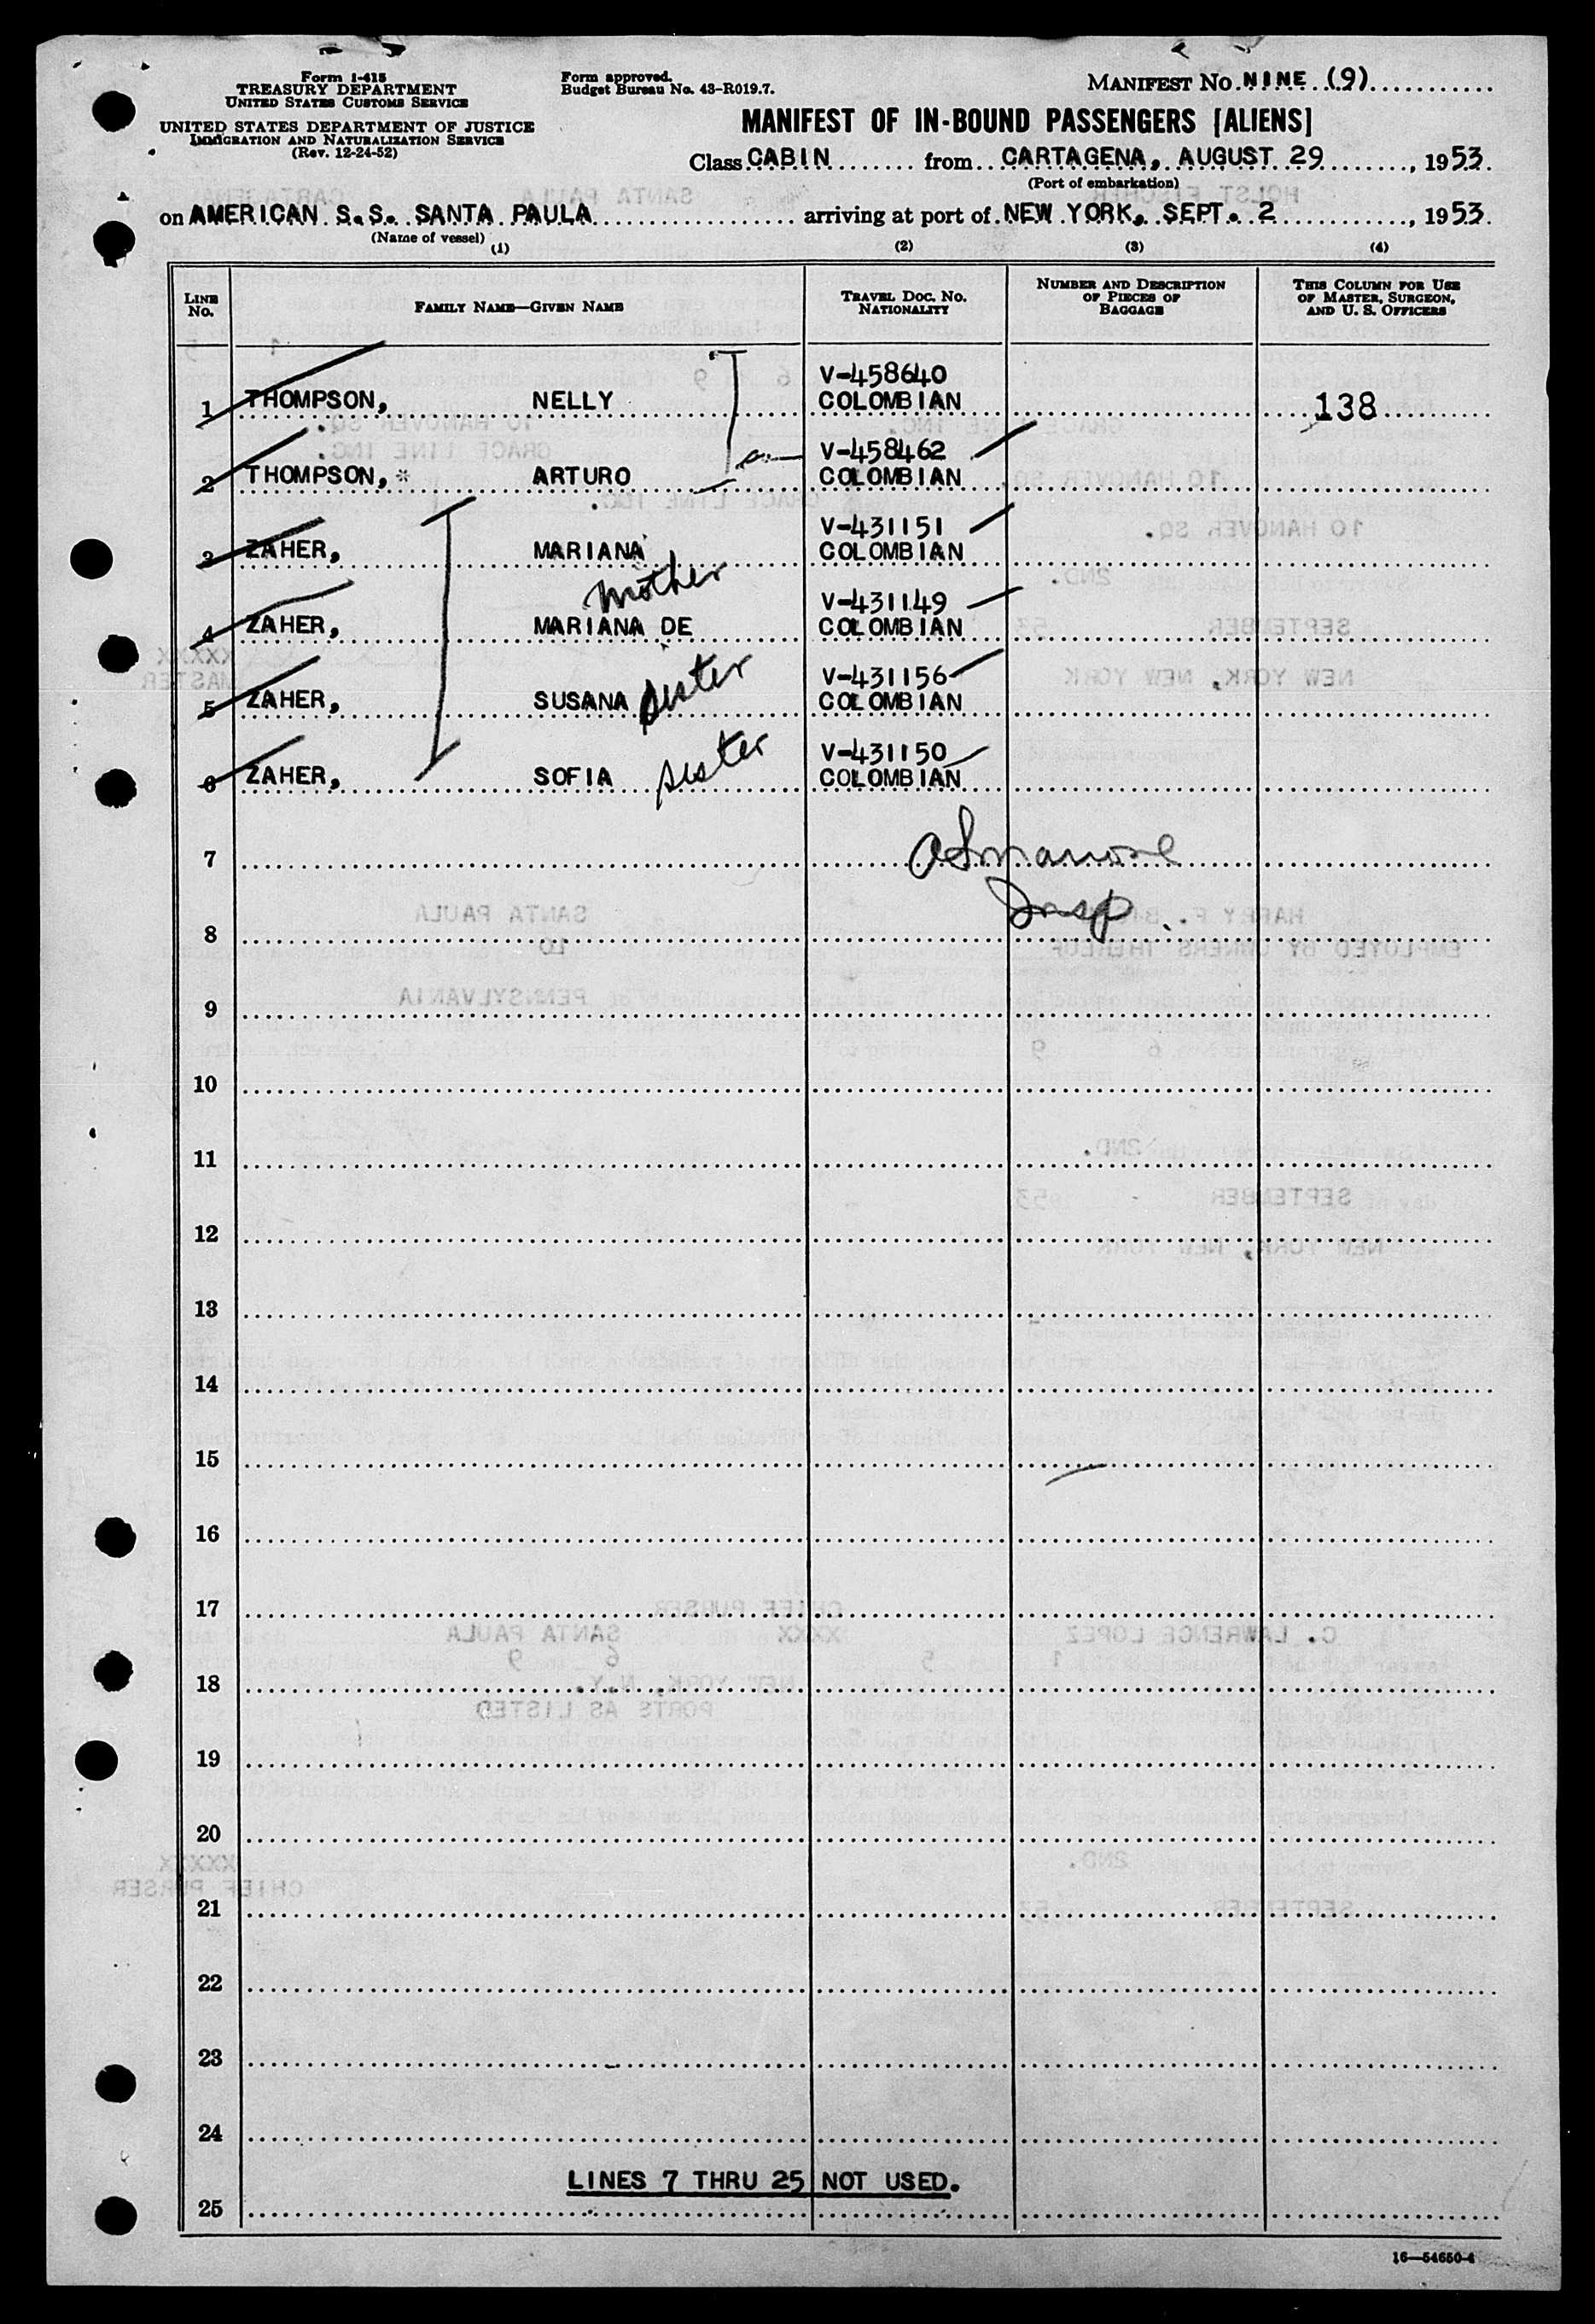 Form I-415
TREASURY DEPARTMENT
UNITED STATES CUSTOMS SERVICE
UNITED STATES DEPARTMENT OF JUSTICE
IMMIGRATION AND NATURALIZATION SERVICE
(Rev. 12-24-52)
Form approved.
Budget Bureau No. 43-R019.7.
MANIFEST NO. NINE (9)
MANIFEST OF IN-BOUND PASSENGERS [ALIENS]
Class CABIN from CARTAGENA, AUGUST 29, 1953
(Port of embarkation)
on AMERICAN S.S. SANTA PAULA arriving at port of NEW YORK, SEPT. 2, 1953
(Name of vessel)
(1) (2) (3) (4)
LINE NO. FAMILY NAME—GIVEN NAME TRAVEL DOC. NO. NATIONALITY NUMBER AND DESCRIPTION OF PIECES OF BAGGAGE THIS COLUMN FOR USE OF MASTER, SURGEON, AND U. S. OFFICERS
V-458640
1 THOMPSON, NELLY COLOMBIAN 138
V-458462
2 THOMPSON,* ARTURO COLOMBIAN
V-431151
3 ZAHER, MARIANA COLOMBIAN
mother V-431149
4 ZAHER, MARIANA DE COLOMBIAN
V-431156
5 ZAHER, SUSANA sister COLOMBIAN
V-431150
6 ZAHER, SOFIA sister COLOMBIAN
7
Insp.
8
9
10
11
12
13
14
15
16
17
18
19
20
21
22
23
24
LINES 7 THRU 25 NOT USED.
25
16—54650-4